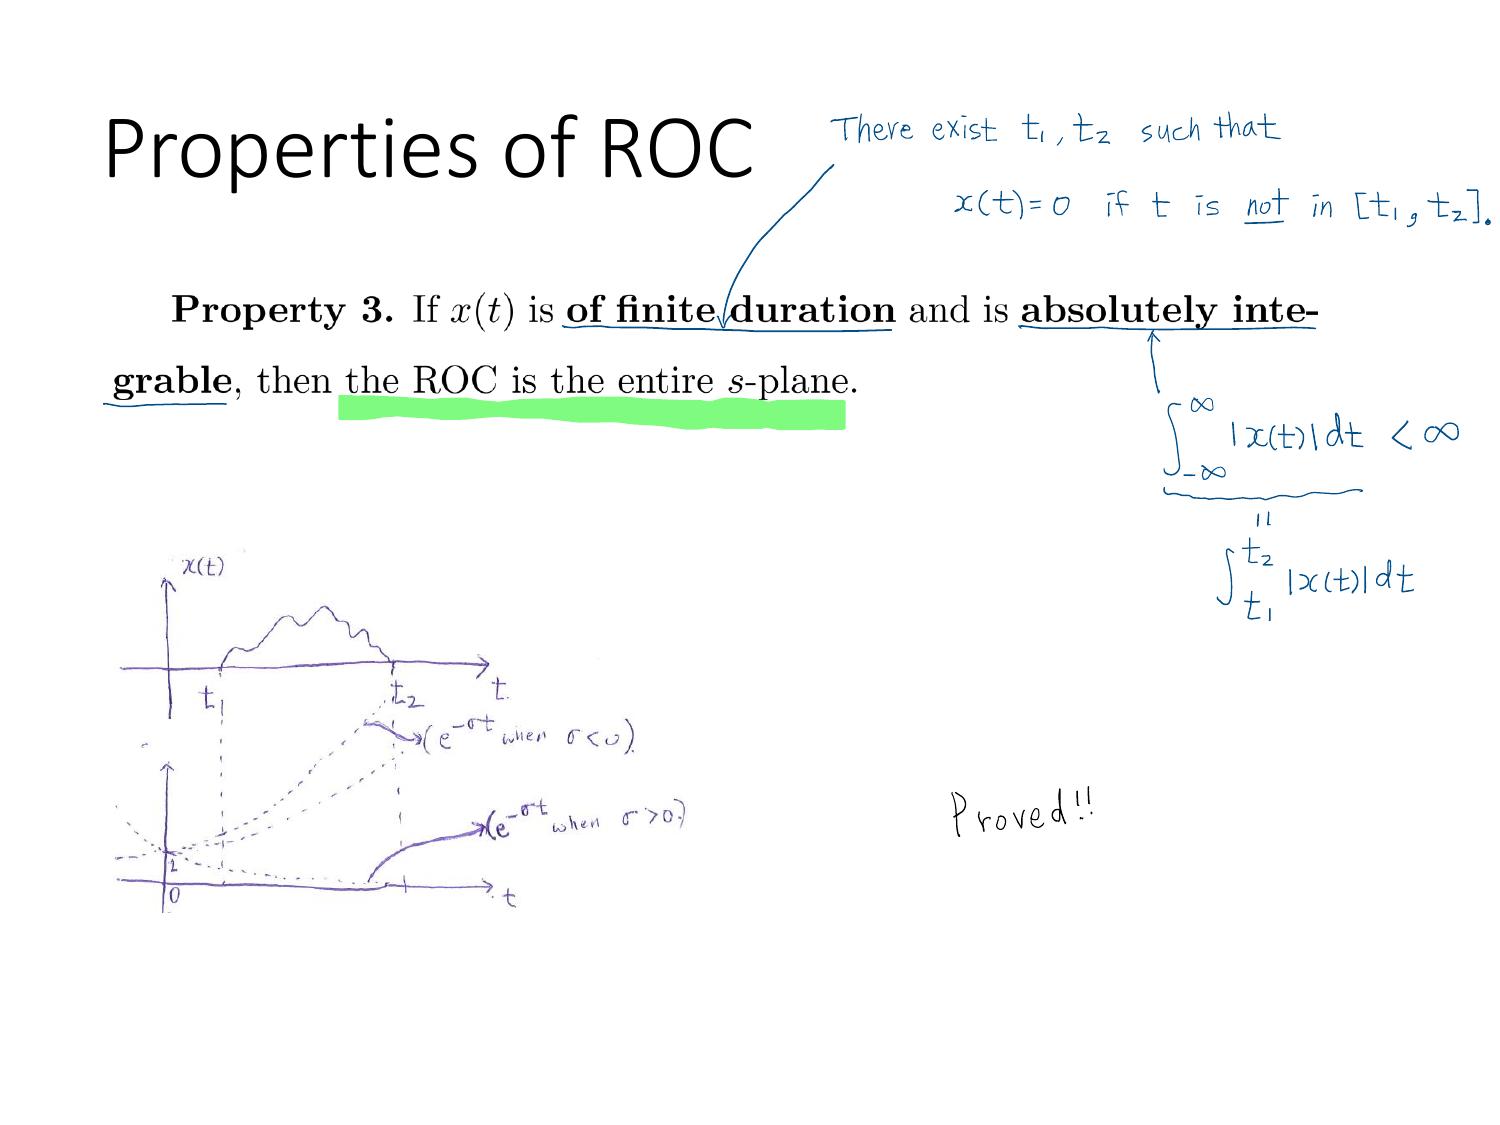 Properties of ROC
There exist t₁, t₂ such that
x(t)=0 if t is not in [t₁, t₂].
Property 3. If x(t) is of finite duration and is absolutely inte-
grable, then the ROC is the entire s-plane.
∫_{-∞}^{∞} |x(t)|dt < ∞
=
∫_{t₁}^{t₂} |x(t)|dt
x(t)
t₁ t₂ t
(e^{-σt} when σ<0)
(e^{-σt} when σ>0)
1
0
t
Proved!!